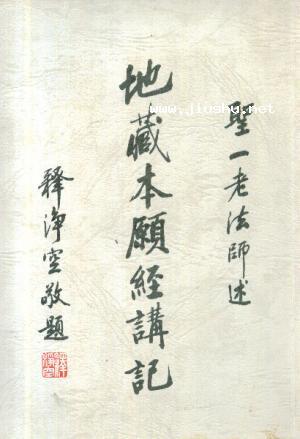 聖一老法師述
地藏本願經講記
釋淨空敬題
www.jiushu.net